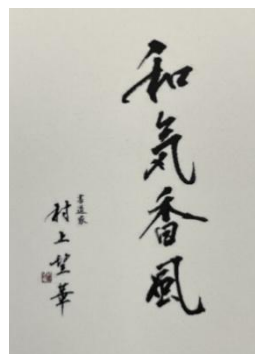 和気香風
書道家
村上望華